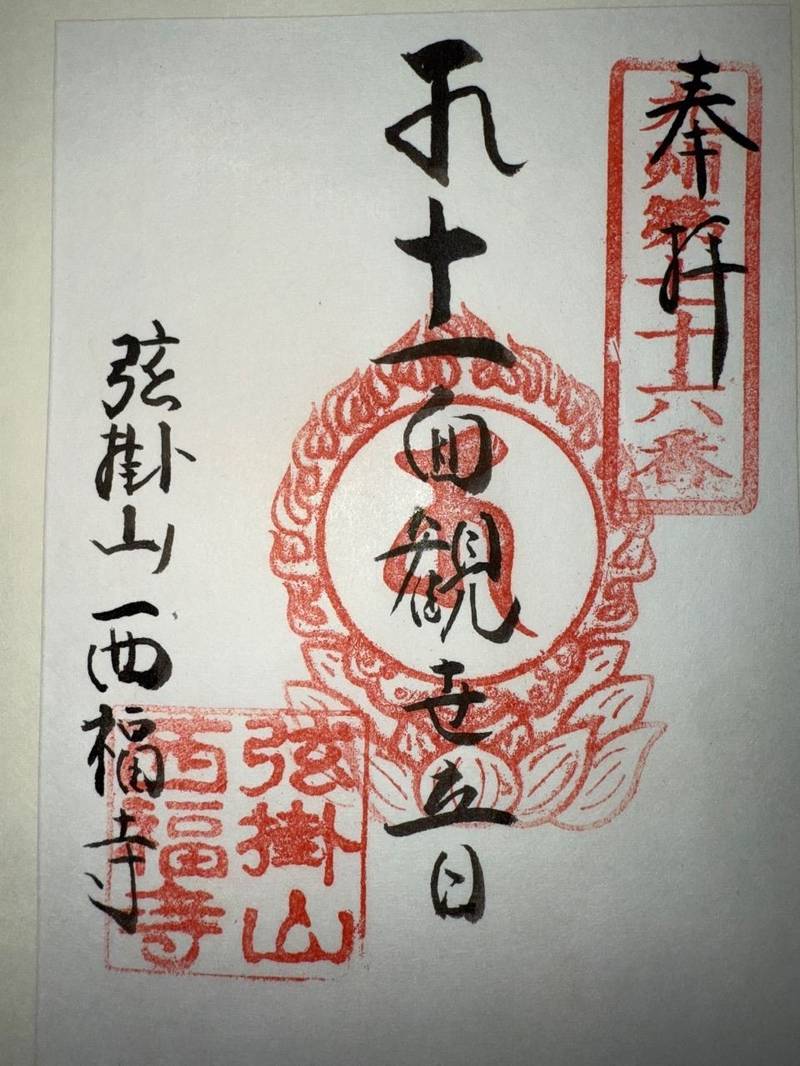 奉拝
九州第七十六番
十一面観世音
弦掛山 西福寺
弦掛山
西福寺